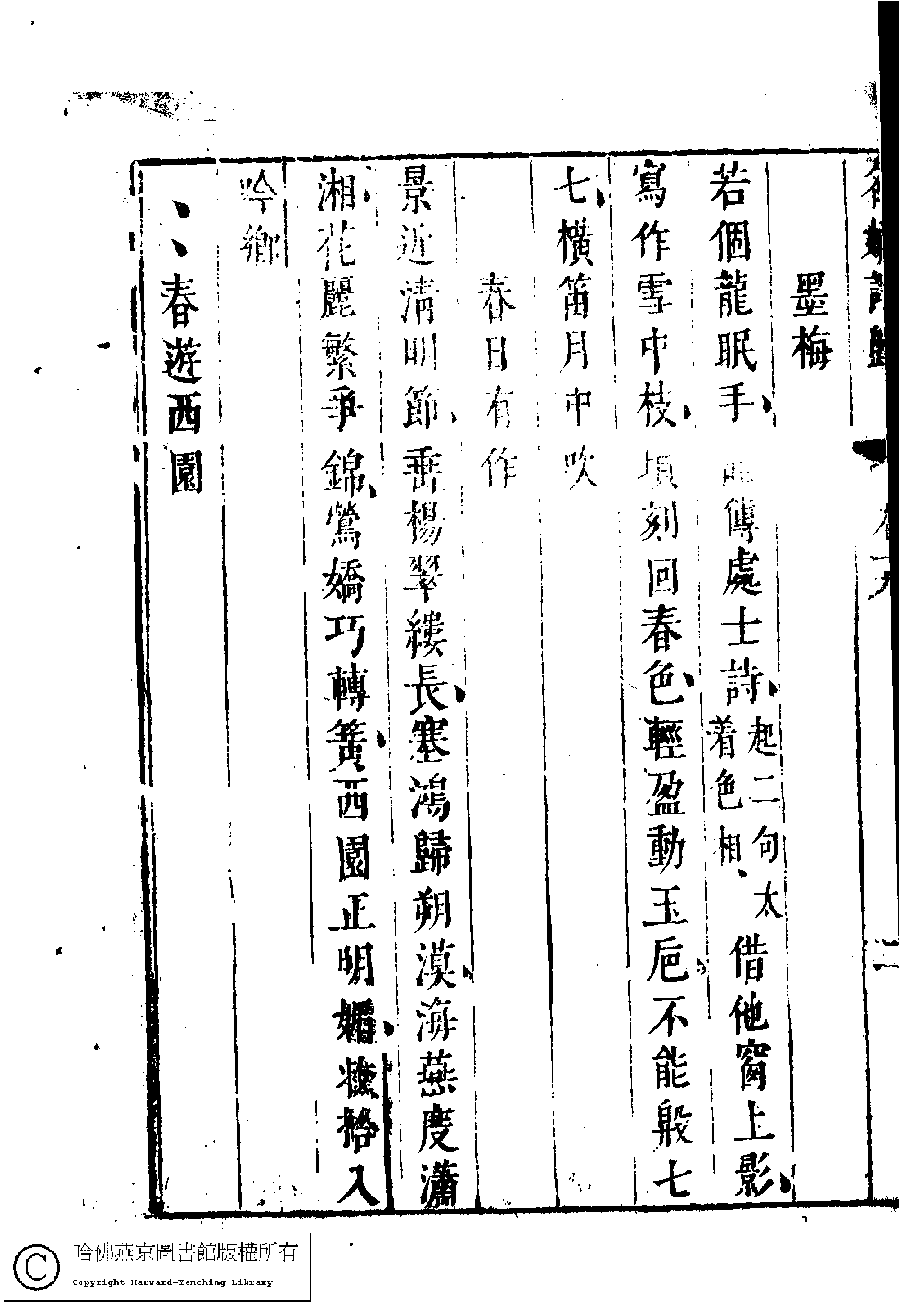 墨梅
若個龍眠手、傳處士詩、起二句太
着色相、借他窗上影、
寫作雪中枝、頃刻回春色、輕盈動玉巵、不能殷七
七、橫笛月中吹
春日有作
景近清明節、垂楊翠縷長、塞鴻歸朔漠、海燕度瀟
湘、花麗繁爭錦、鶯嬌巧轉簧、西園正明媚、拾入
吟鄉
、、春遊西園
哈佛燕京圖書館版權所有
Copyright Harvard-Yenching Library